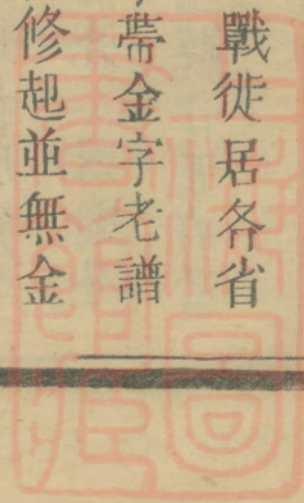 戰徙居各省
帶金字老譜
修起並無金